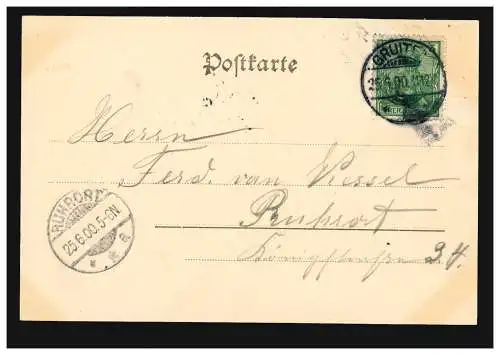 Postkarte
GRUITEN
25.6.00. 11-12V
Herrn
Ferd. van Vessel
Ruhrort
Königstraße 34.
RUHRORT
25.6.00.5-6N